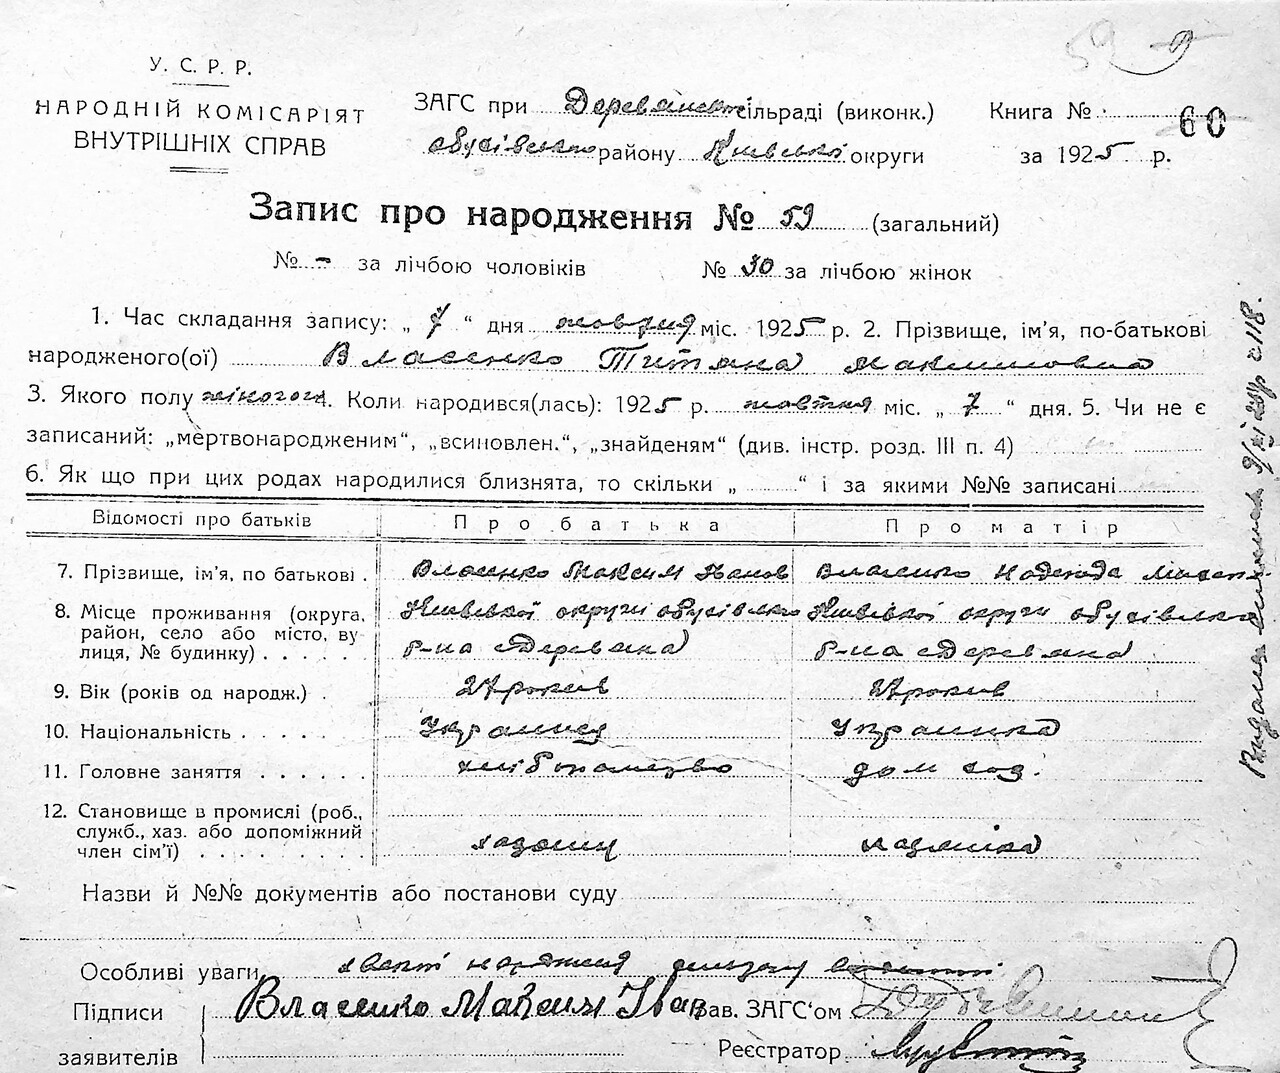 59 9
У. С. Р. Р.
НАРОДНІЙ КОМІСАРІЯТ
ВНУТРІШНІХ СПРАВ
ЗАГС при Деревянск сільраді (виконк.)
обухівського району Київської округи
Книга №
60
за 1925 р.
Запис про народження № 59 (загальний)
№ - за лічбою чоловіків № 30 за лічбою жінок
1. Час складання запису: „ 7 “ дня жовтня міс. 1925 р. 2. Прізвище, ім’я, по-батькові
народженого(ої) Власенко Титяна Максимовна
3. Якого полу жіночого 4. Коли народився(лась): 1925 р. жовтня міс. „ 7 “ дня. 5. Чи не є
записаний: „мертвонародженим“, „всиновлен.“, „знайденям“ (див. інстр. розд. III п. 4)
6. Як що при цих родах народилися близнята, то скільки „ “ і за якими №№ записані
Відомості про батьків Про батька Про матір
7. Прізвище, ім’я, по батькові Власенко Максим Іванов Власенко Надежда
8. Місце проживання (округа, Київської округи обухівського Київської округи обухівсько
район, село або місто, ву р-на Деревяна р-на Деревяна
лиця, № будинку)
9. Вік (років од народж.) 27 років 27 років
10. Національність Українец Украинка
11. Головне заняття хлібопашство дом хоз.
12. Становище в промислі (роб.,
служб., хаз. або допоміжний
член сім’ї) хазяин хазяйка
Назви й №№ документів або постанови суду
Особливі уваги
Підписи Власенко Максим Іван Зав. ЗАГС’ом
заявителів Реєстратор